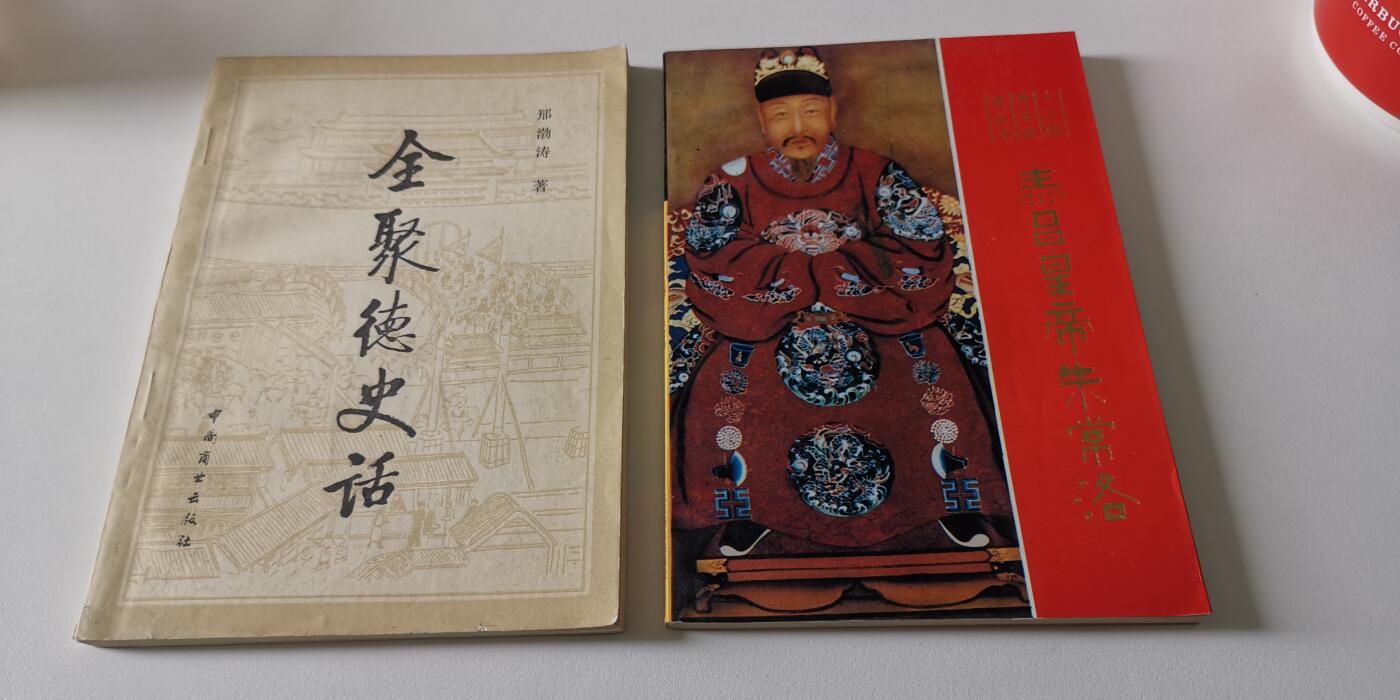 那渤涛 著
全聚德史话
中国商业出版社
泰昌皇帝朱常洛
COFFEE